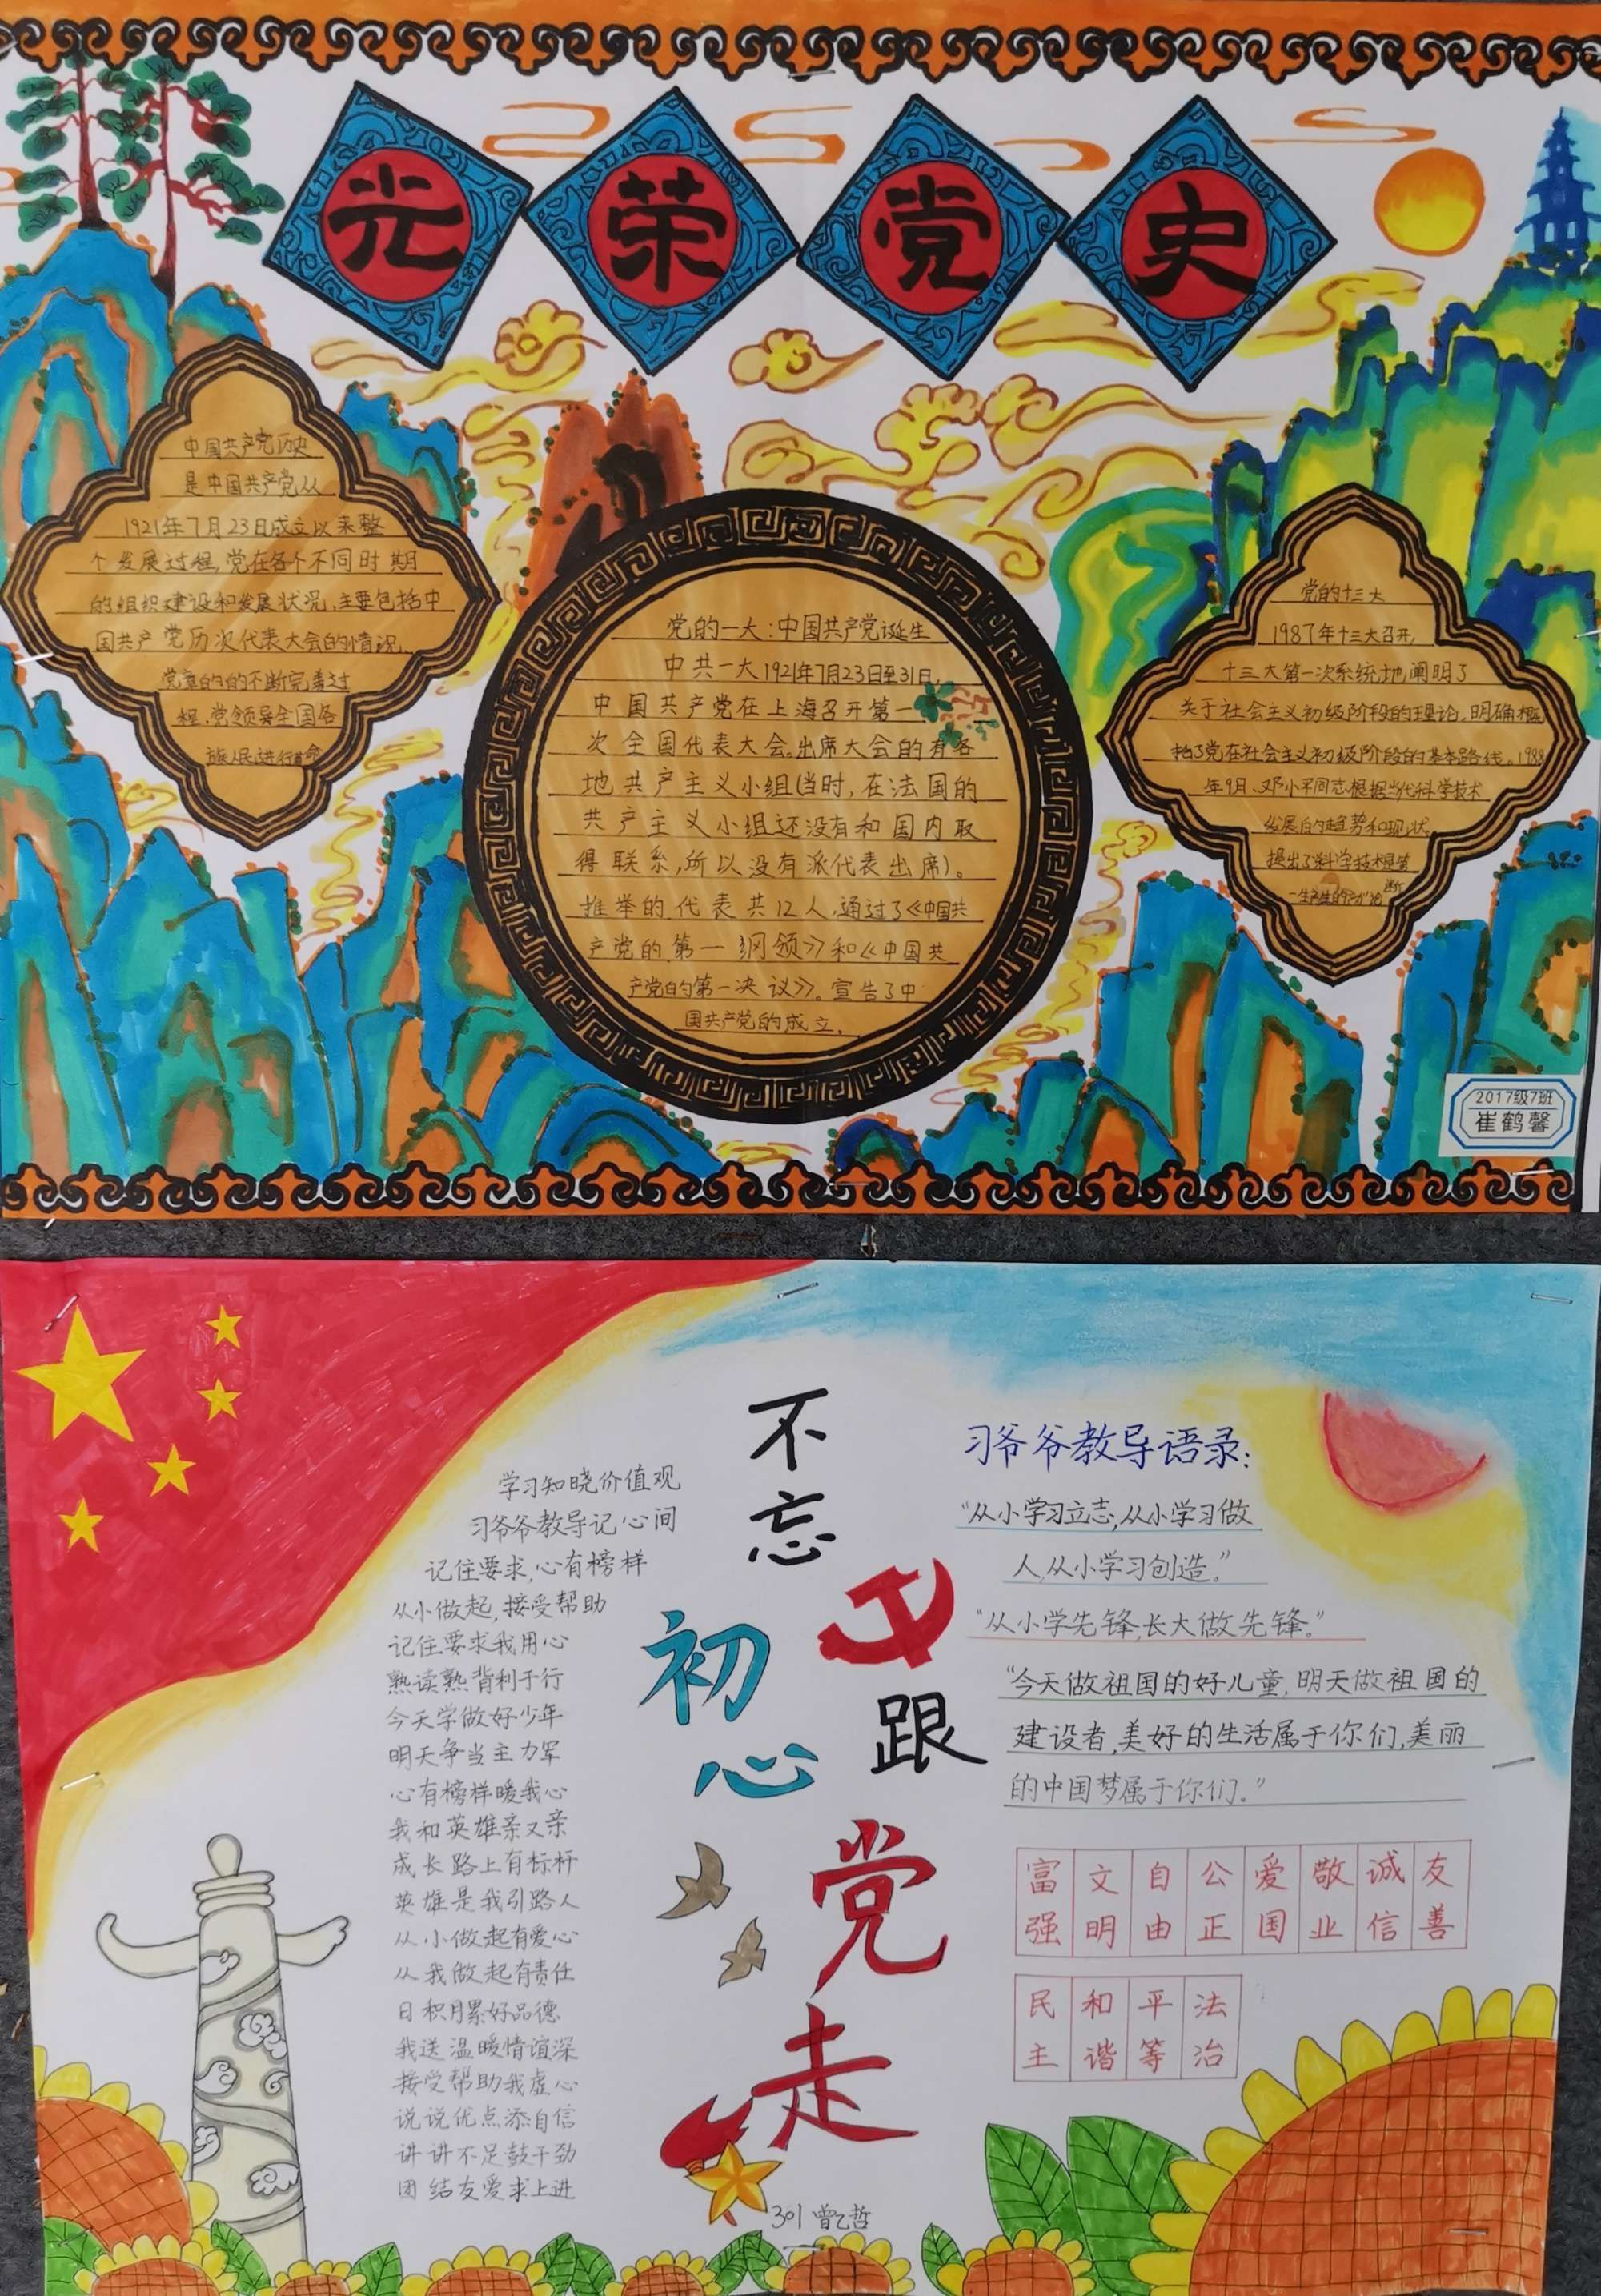 光荣党史
中国共产党历史
是中国共产党从
1921年7月23日成立以来整
个发展过程,党在各个不同时期
的组织建设和发展状况,主要包括中
国共产党历次代表大会的情况,
党章的的不断完善过
程,党领导全国各
族人民进行革命
党的一大:中国共产党诞生
中共一大1921年7月23日至31日,
中国共产党在上海召开第一
次全国代表大会。出席大会的有各
地共产主义小组(当时,在法国的
共产主义小组还没有和国内取
得联系,所以没有派代表出席)。
推举的代表共12人,通过了《中国共
产党的第一纲领》和《中国共
产党的第一决议》。宣告了中
国共产党的成立。
党的十三大
1987年十三大召开,
十三大第一次系统地阐明了
关于社会主义初级阶段的理论,明确概
括了党在社会主义初级阶段的基本路线。1988
年9月、邓小平同志根据当代科学技术
发展的趋势和现状,
提出了科学技术是第
一生产
2017级7班
崔鹤馨
不忘
初心
跟
党
走
学习知晓价值观
习爷爷教导记心间
记住要求,心有榜样
从小做起,接受帮助
记住要求我用心
熟读熟背利于行
今天学做好少年
明天争当主力军
心有榜样暖我心
我和英雄亲又亲
成长路上有标杆
英雄是我引路人
从小做起有爱心
从我做起有责任
日积月累好品德
我送温暖情谊深
接受帮助我虚心
说说优点添自信
讲讲不足鼓干劲
团结友爱求上进
301 曾乙哲
习爷爷教导语录:
“从小学习立志,从小学习做
人,从小学习创造。”
“从小学先锋,长大做先锋。”
“今天做祖国的好儿童,明天做祖国的
建设者,美好的生活属于你们,美丽
的中国梦属于你们。”
富强 文明 自由 公正 爱国 敬业 诚信 友善
民主 和谐 平等 法治